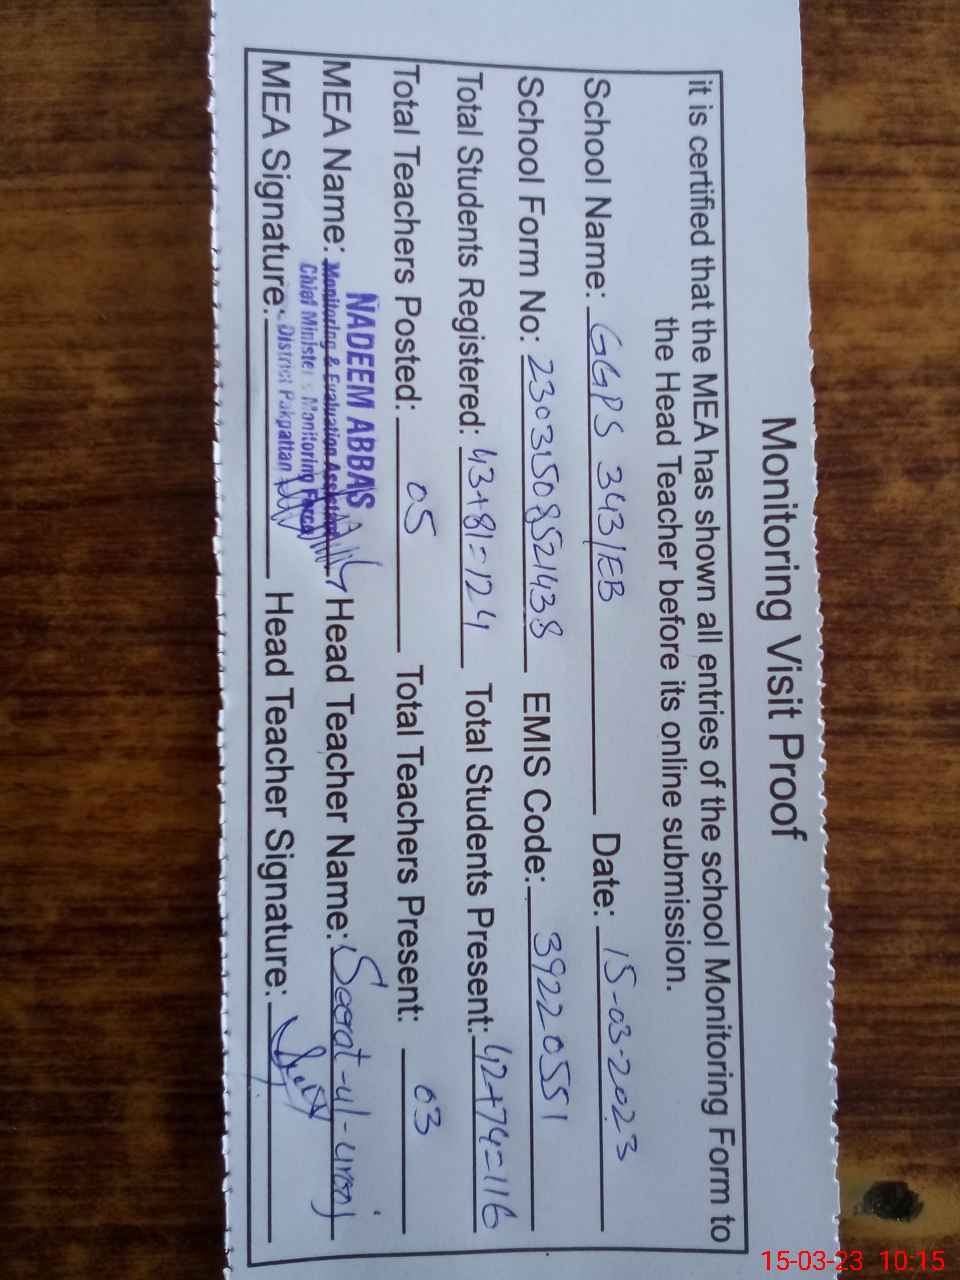 Monitoring Visit Proof
it is certified that the MEA has shown all entries of the school Monitoring Form to
the Head Teacher before its online submission.
School Name: GGPS 343/EB Date: 15-03-2023
School Form No: 23031508521438 EMIS Code: 39220551
Total Students Registered: 43+81=124 Total Students Present: 42+74=116
Total Teachers Posted: 05 Total Teachers Present: 03
NADEEM ABBAS
MEA Name: Monitoring & Evaluation Assistant Head Teacher Name: Seerat-ul-
Chief Minister's Monitoring Force
MEA Signature: District Pakpattan Head Teacher Signature:
15-03-23 10:15